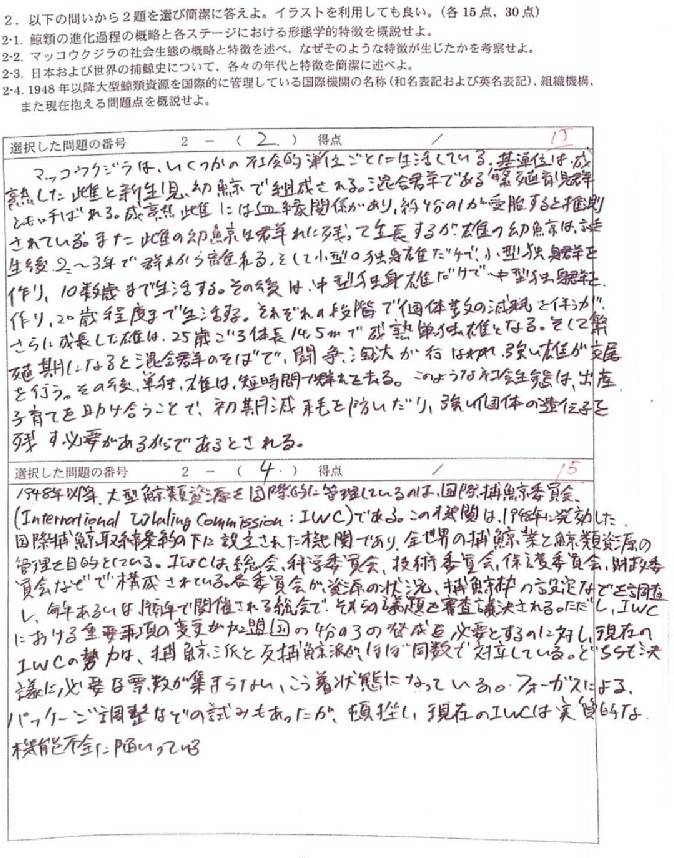 2．以下の問いから2題を選び簡潔に答えよ。イラストを利用しても良い。(各15点、30点)
2-1. 鯨類の進化過程の概略と各ステージにおける形態学的特徴を概説せよ。
2-2. マッコウクジラの社会生態の概略と特徴を述べ、なぜそのような特徴が生じたかを考察せよ。
2-3. 日本および世界の捕鯨史について、各々の年代と特徴を簡潔に述べよ。
2-4. 1948年以降大型鯨類資源を国際的に管理している国際機関の名称(和名表記および英名表記)，組織機構，
また現在抱える問題点を概説せよ。
選択した問題の番号 2 － ( 2 ) 得点 / 15
マッコウクジラは、いくつかの社会的単位ごとに生活している。基準位は、成
熟した雌と新生児、幼鯨で組成される。混合群でありる 繁殖育児群
ともいわばれる。成熟雌には血縁関係があり、約4分の1が受胎すると推測
されている。また雌の幼鯨は群れに残って生長するが雄の幼鯨は、誕
生後2〜3年で群れから離れる。そして小型の独身雄だけで、小型独身群を
作り、10数歳まで生活する。その後は、中型独身雄だけで中型独身群を
作り、20歳程度まで生活する。それぞれの段階で個体数の減耗を伴うが、
さらに成長した雄は、25歳ごろ体長14.5mで成熟単独雄となる。そして繁
殖期になると混合群のそばで、闘争、淘汰が行なわれ、強い雄が交尾
を行う。その後、単独雄は、短時間で群れを去る。このような社会生態は、出産、
子育てを助け合うことで、初期減耗を防いだり、強い個体の遺伝子を
残す必要があるからであるとされる。
選択した問題の番号 2 － ( 4 ) 得点 / 15
1948年以降、大型鯨類資源を国際的に管理しているのは、国際捕鯨委員会
(International Whaling Commission : IWC)である。この機関は、1948年に発効した
国際捕鯨取締条約の下に設立された機関であり、全世界の捕鯨業と鯨類資源の
管理を目的としている。IWCは総会、科学委員会、技術委員会、保護委員会、財政委
員会などで構成されている。各委員会が資源の状況、捕鯨枠の設定などを調査
し、毎年あるいは隔年で開催される総会で、それらの議題を審査議決される。ただし、IWC
における重要事項の変更が加盟国の4分の3の賛成を必要とするのに対し、現在の
IWCの勢力は、捕鯨派と反捕鯨派が、ほぼ同数で対立している。どちらも決
議に必要な票数が集まらない、こう着状態になっている。フォーガスによる、
パッケージ調整などの試みもあったが、頓挫し、現在のIWCは実質的な
機能不全に陥いっている